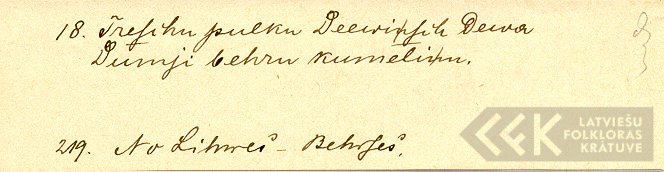 18. Treschu pulku Deewinsch Dewa
Dumji behru kumelinu.
219. No Lihwes - Behrses.
LATVIEŠU
FOLKLORAS
KRĀTUVE